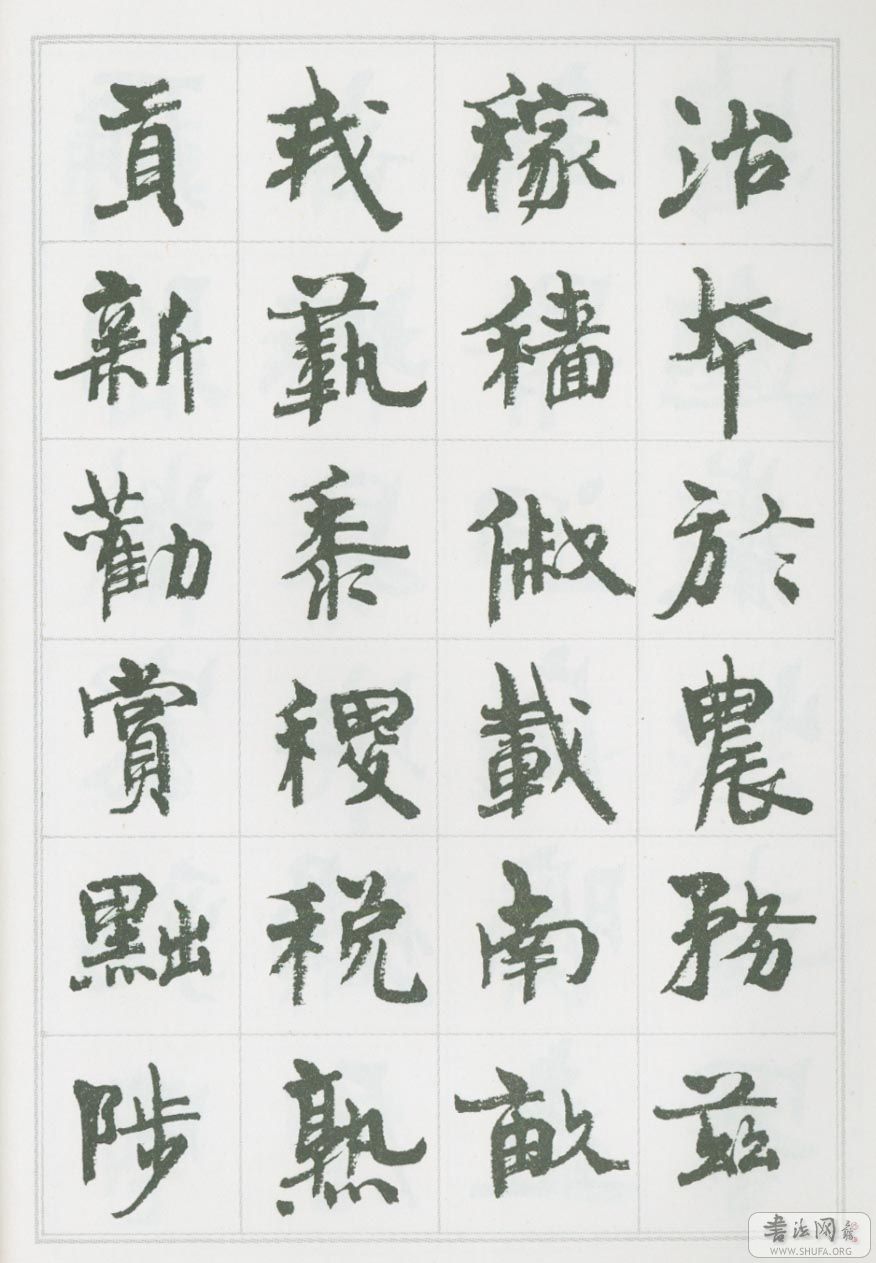 治本於農務茲
稼穡俶載南畝
我藝黍稷稅熟
貢新勸賞黜陟
書法网
WWW.SHUFA.ORG